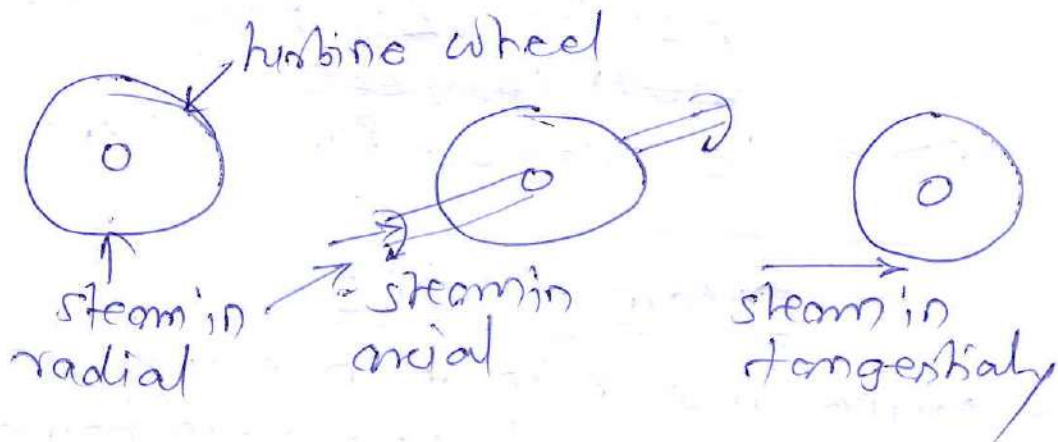 turbine wheel
steam in
radial
steam in
axial
steam in
tangestialy